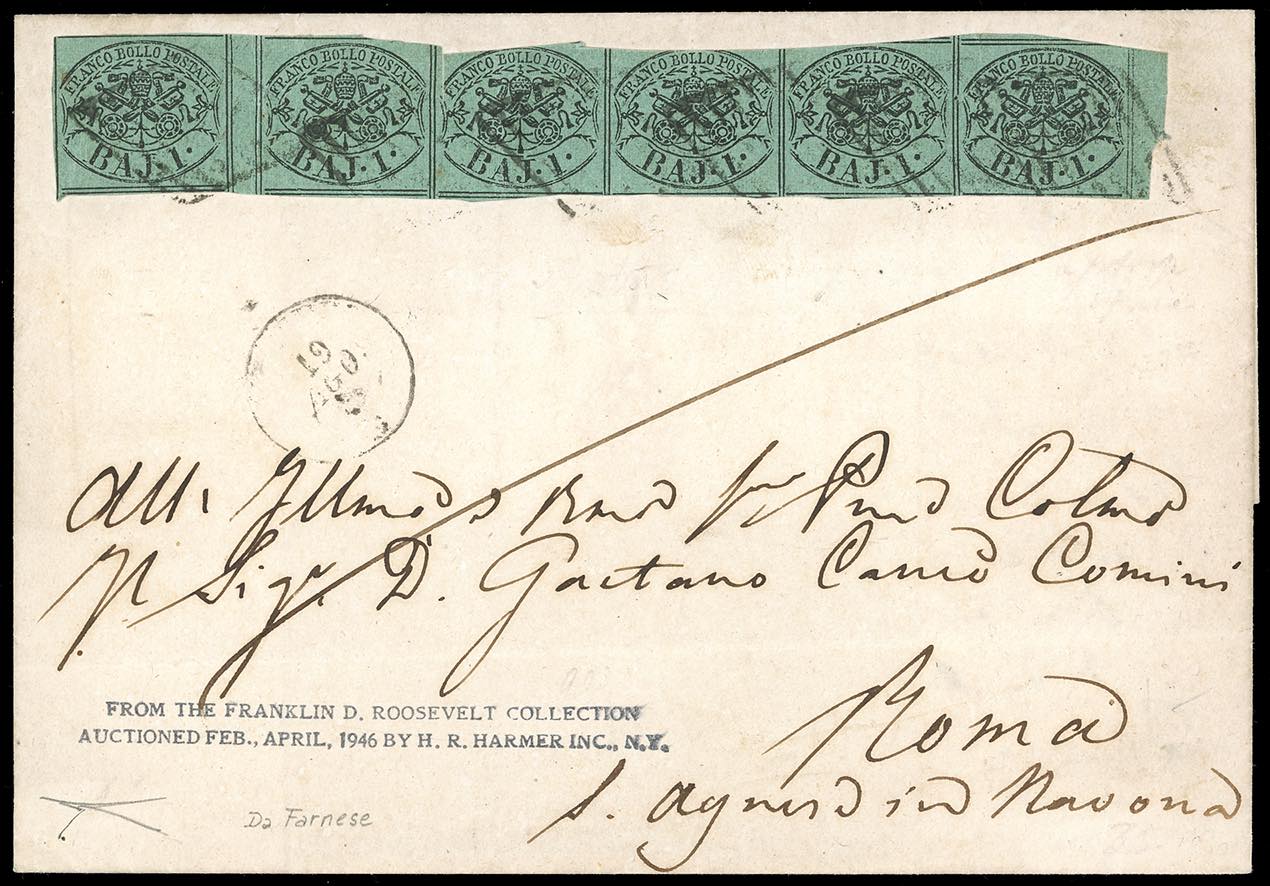 FRANCO BOLLO POSTALE
BAJ. 1.
FRANCO BOLLO POSTALE
BAJ. 1.
FRANCO BOLLO POSTALE
BAJ. 1.
FRANCO BOLLO POSTALE
BAJ. 1.
FRANCO BOLLO POSTALE
BAJ. 1.
FRANCO BOLLO POSTALE
BAJ. 1.
All' Illmo e Rmo Colmo
Il Sigr. D. Gaetano Comini
Roma
S. Agnese in Navona
FROM THE FRANKLIN D. ROOSEVELT COLLECTION
AUCTIONED FEB., APRIL, 1946 BY H. R. HARMER INC., N.Y.
Da Farnese